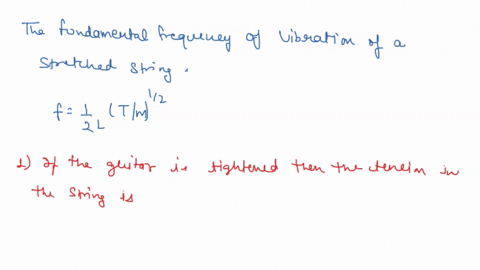 The fundamental frequency of vibration of a
stretched string.
f = 1/2L (T/m)^1/2
1) If the guitar is tightened then the tension in
the string is